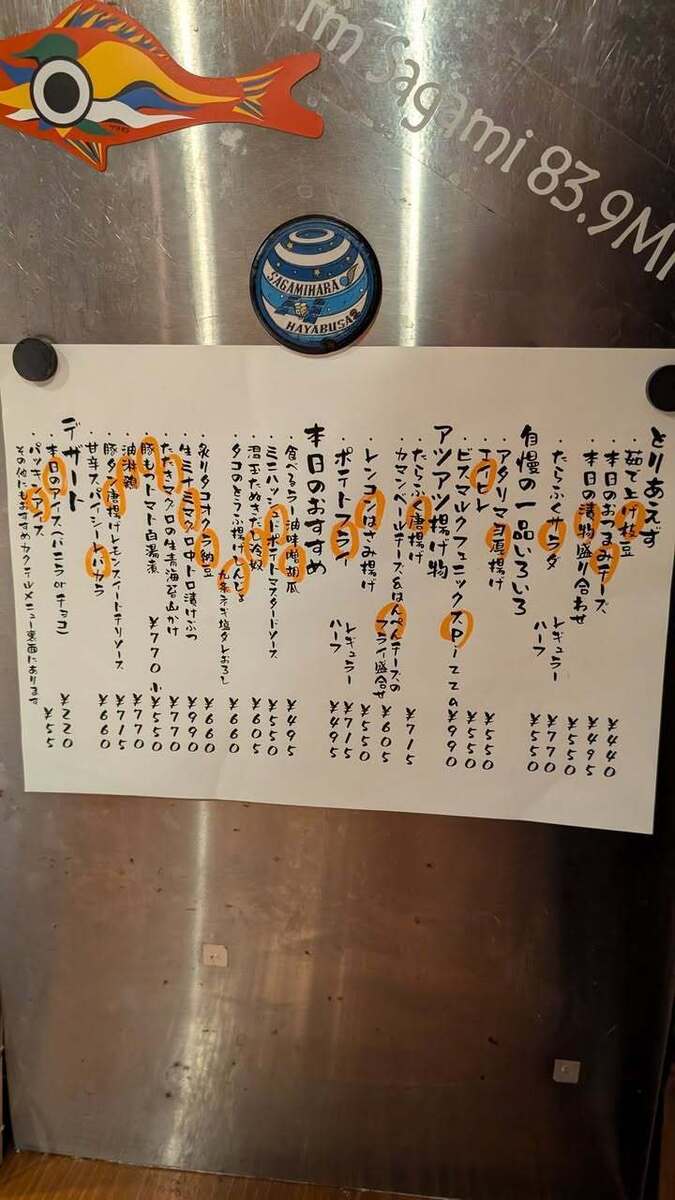 fm Sagami 83.9MH
SAGAMIHARA
HAYABUSA2
とりあえず
・茹で上げ枝豆 ¥440
・本日のおつまみチーズ ¥495
・本日の漬物盛り合わせ ¥550
・たらふくサラダ レギュラー ¥770
ハーフ ¥550
自慢の一品いろいろ
・アタリマヨ源揚げ ¥550
・エイヒレ ¥550
・ビスマルクフェニックスPizza ¥990
アツアツ揚げ物
・たらふく唐揚げ ¥715
・カマンベールチーズ&はんぺんチーズの
フライ盛合せ ¥605
・レンコンはさみ揚げ ¥550
・ポテトフライ レギュラー ¥715
ハーフ ¥495
本日のおすすめ
・食べるラー油味噌胡瓜 ¥495
・ミニハッシュドポテトマスタードソース ¥550
・君玉たぬきだし冷奴 ¥605
・タコのとうふ揚げしんじょ
九条ネギ塩タレおろし ¥660
・炙りタコオクラ納豆 ¥660
・生ミナミマグロ中トロ漬けぶつ ¥990
・たたきマグロの生青海苔山かけ ¥770
・豚もつトマト白湯煮 ¥770 小¥550
・油淋鶏 ¥770
・豚タン唐揚げレモンスイートチリソース ¥715
・甘辛スパイシートリカワ ¥660
デザート
・本日のアイス(バニラorチョコ) ¥220
・パッキンアイス ¥55
その他にもおすすめカクテルメニュー裏面にあります